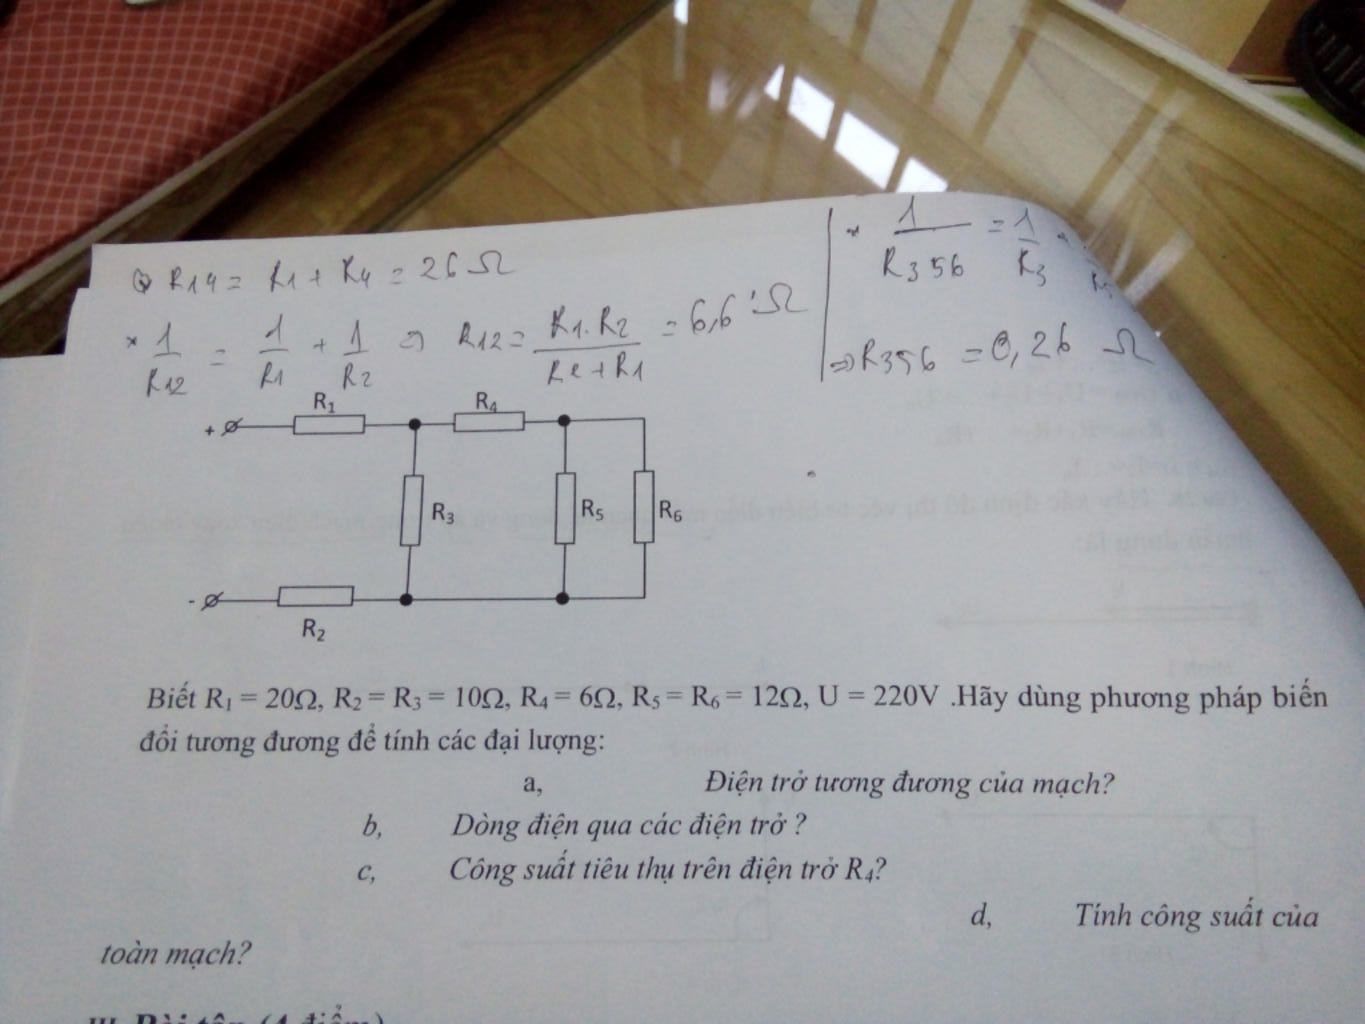 R14 = R1 + R4 = 26 Ω
* 1/R12 = 1/R1 + 1/R2 => R12 = R1.R2/R2+R1 = 6,6 Ω
* 1/R356 = 1/R3
=> R356 = 0,26 Ω
R1 R4
+
R3 R5 R6
-
R2
Biết R1 = 20Ω, R2 = R3 = 10Ω, R4 = 6Ω, R5 = R6 = 12Ω, U = 220V .Hãy dùng phương pháp biến
đổi tương đương để tính các đại lượng:
a, Điện trở tương đương của mạch?
b, Dòng điện qua các điện trở ?
c, Công suất tiêu thụ trên điện trở R4?
d, Tính công suất của
toàn mạch?
III. Bài tập (4 điểm)